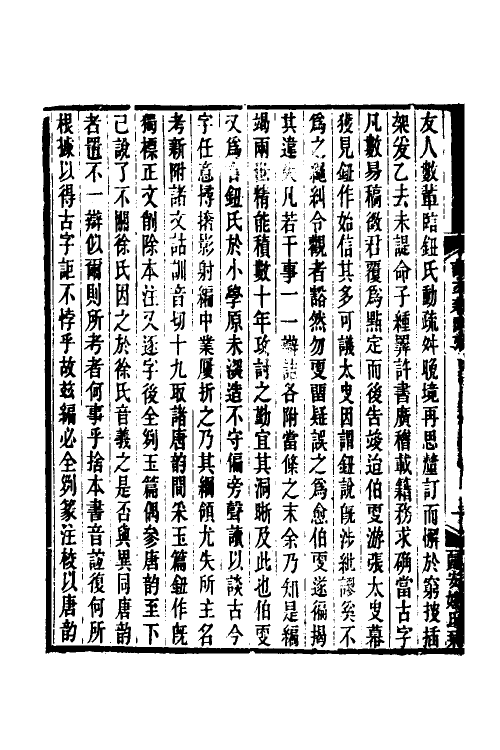 友人數輩臨鈕氏動疏舛晚境再思釐訂而懈於窮搜插
架爰乙去未諟命子種羃許書廣稽載籍務求确當古字
凡數易稿徵君覆爲點定而後告竣迨伯叓游張太叟幕
獲見鈕作始信其多可議太叟因謂鈕說旣涉紕謬奚不
爲之繩糾令觀者豁然勿叓畱疑誤之爲愈伯叓遂徧揭
其違失凡若干事一一辯詰各附當條之末余乃知是編
竭兩世精能積數十年攻討之勤宜其洞晰及此也伯叓
又爲言鈕氏於小學原未深造不守偏旁聲讀以談古今
字任意摶撦影射編中業屢折之乃其綱領尤失所主名
考新附諸文詁訓音切十九取諸唐韵間采玉篇鈕作旣
獨標正文削除本注又逐字後全剟玉篇偶參唐韵至下
己說了不關徐氏因之於徐氏音義之是否與異同唐韵
者置不一辯似爾則所考者何事乎捨本書音誼復何所
根據以得古字詎不悖乎故茲編必全剟篆注校以唐韵